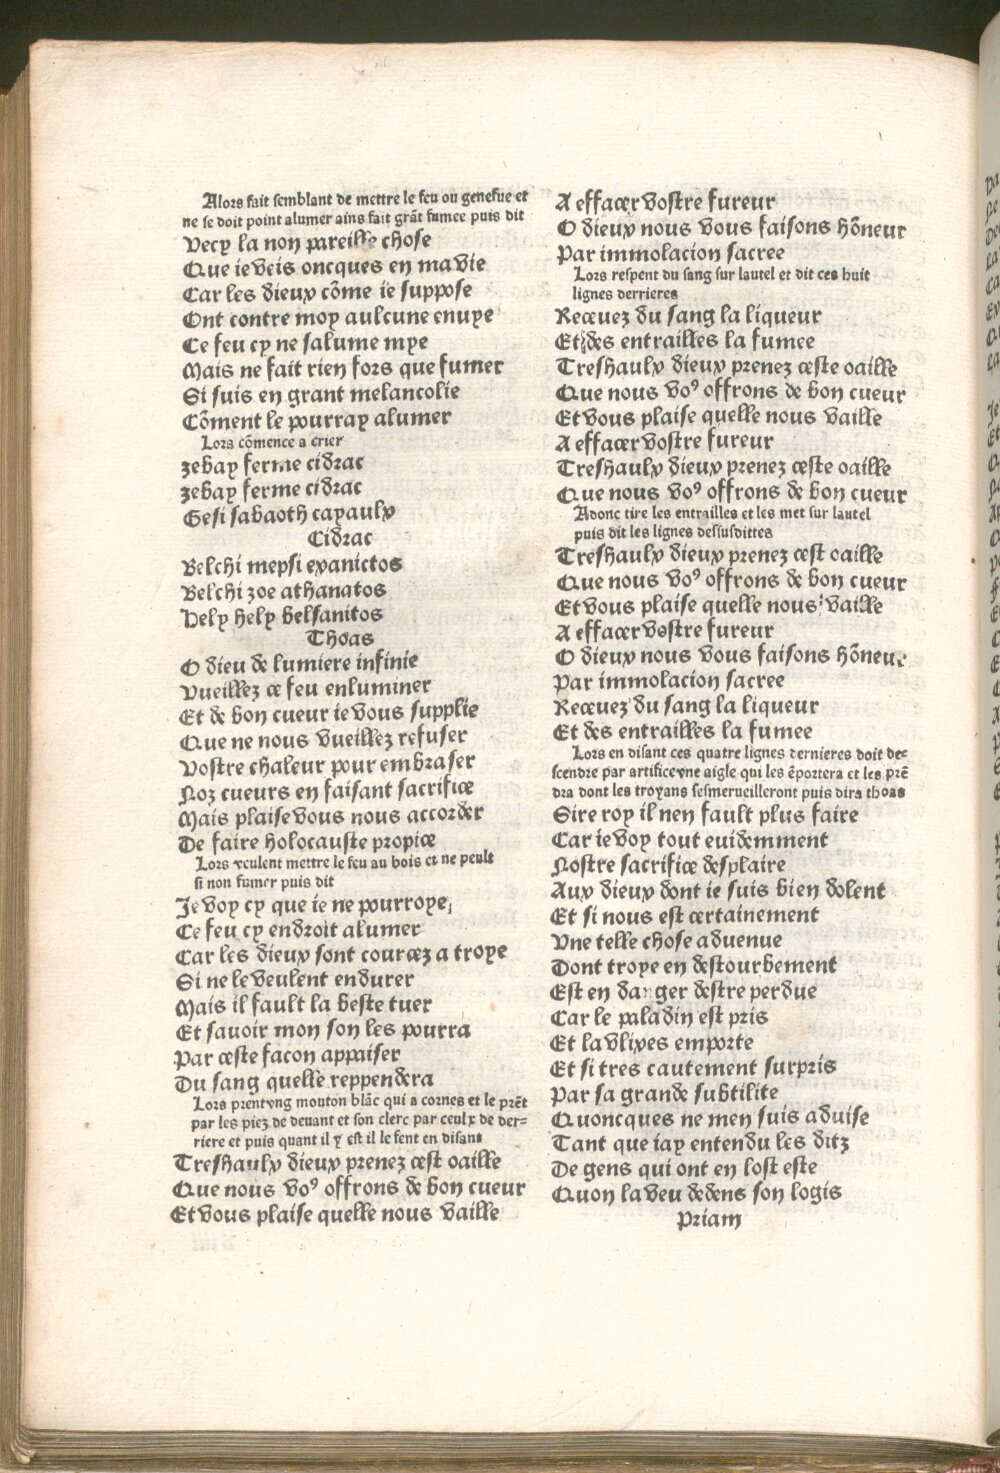 Alors fait semblant de mettre le feu ou genefue et
ne se doit point alumer ains fait grãt fumee puis dit
Vecy la non pareille chose
Que ie veis oncques en ma vie
Car les dieux cõme ie suppose
Ont contre moy aulcune enuye
Ce feu cy ne salume mye
Mais ne fait rien fors que fumer
Si suis en grant melancolie
Cõment le pourray alumer
Lors cõmence a crier
zebay ferme cidrac
zebay ferme cidrac
Gesi sabaoth capaulx
Cidrac
Belchi mepsi exanictos
Belchi zoe athanatos
Hely hely belsanitos
Thoas
O dieu de lumiere infinie
Vueillez ce feu enluminer
Et de bon cueur ie vous supplie
Que ne nous vueillez refuser
Vostre chaleur pour embraser
Noz cueurs en faisant sacrifice
Mais plaise vous nous accorder
De faire holocauste propice
Lors veulent mettre le feu au bois et ne peult
si non fumer puis dit
Je voy cy que ie ne pourroye
Ce feu cy endroit alumer
Car les dieux sont courcez a troye
Si ne le veulent endurer
Mais il fault la beste tuer
Et savoir mon son les pourra
Par ceste facon appaiser
Du sang quelle reppendera
Lors prent vng mouton blãc qui a cornes et le prẽt
par les piez de deuant et son clerc par ceulx de der-
riere et puis quant il y est il le fent en disant
Treshaulx dieux prenez cest oaille
Que nous voꝰ offrons de bon cueur
Et vous plaise quelle nous vaille
A effacer vostre fureur
O dieux nous vous faisons hõneur
Par immolacion sacree
Lors respent du sang sur lautel et dit ces huit
lignes derrieres
Receuez du sang la liqueur
Et des entrailles la fumee
Treshaulx dieux prenez ceste oaille
Que nous voꝰ offrons de bon cueur
Et vous plaise quelle nous vaille
A effacer vostre fureur
Treshaulx dieux prenez ceste oaille
Que nous voꝰ offrons de bon cueur
Adonc tire les entrailles et les met sur lautel
puis dit les lignes dessusdittes
Treshaulx dieux prenez cest oaille
Que nous voꝰ offrons de bon cueur
Et vous plaise quelle nous vaille
A effacer vostre fureur
O dieux nous vous faisons hõneur
Par immolacion sacree
Receuez du sang la liqueur
Et des entrailles la fumee
Lors en disant ces quatre lignes dernieres doit de-
scendre par artifice vne aigle qui les ẽportera et les prẽ
dra dont les troyans sesmerueilleront puis dira thoas
Sire roy il nen fault plus faire
Car ie voy tout euidemment
Nostre sacrifice desplaire
Aux dieux dont ie suis bien dolent
Et si nous est certainement
Vne telle chose aduenue
Dont troye en destourbement
Est en danger destre perdue
Car le paladin est pris
Et la vlixes emporte
Et si tres cautement surpris
Par sa grande subtilite
Quoncques ne men suis aduise
Tant que iay entendu les ditz
De gens qui ont en lost este
Quon la veu dedens son logis
Priam